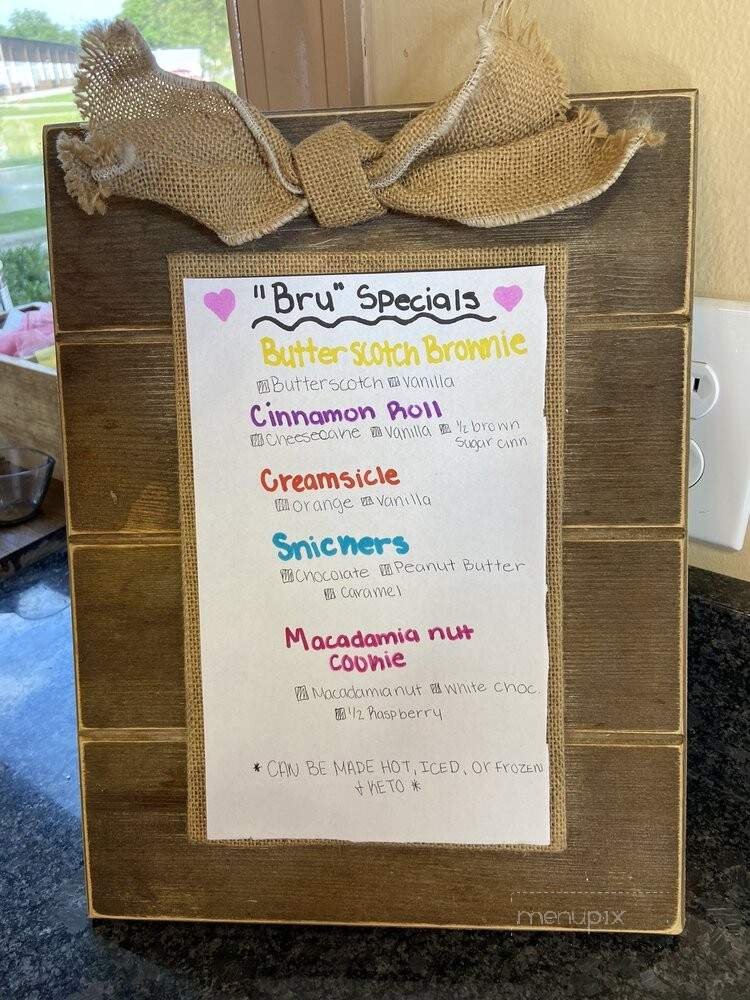 "Bru" Specials
Butterscotch Brownie
Butterscotch Vanilla
Cinnamon Roll
Cheesecake Vanilla 1/2 brown
sugar cinn.
Creamsicle
orange vanilla
Snickers
Chocolate Peanut Butter
caramel
Macadamia nut
cookie
Macadamia nut white choc.
1/2 Raspberry
* CAN BE MADE HOT, ICED, Or FrOZEN
+ KETO *
menupix